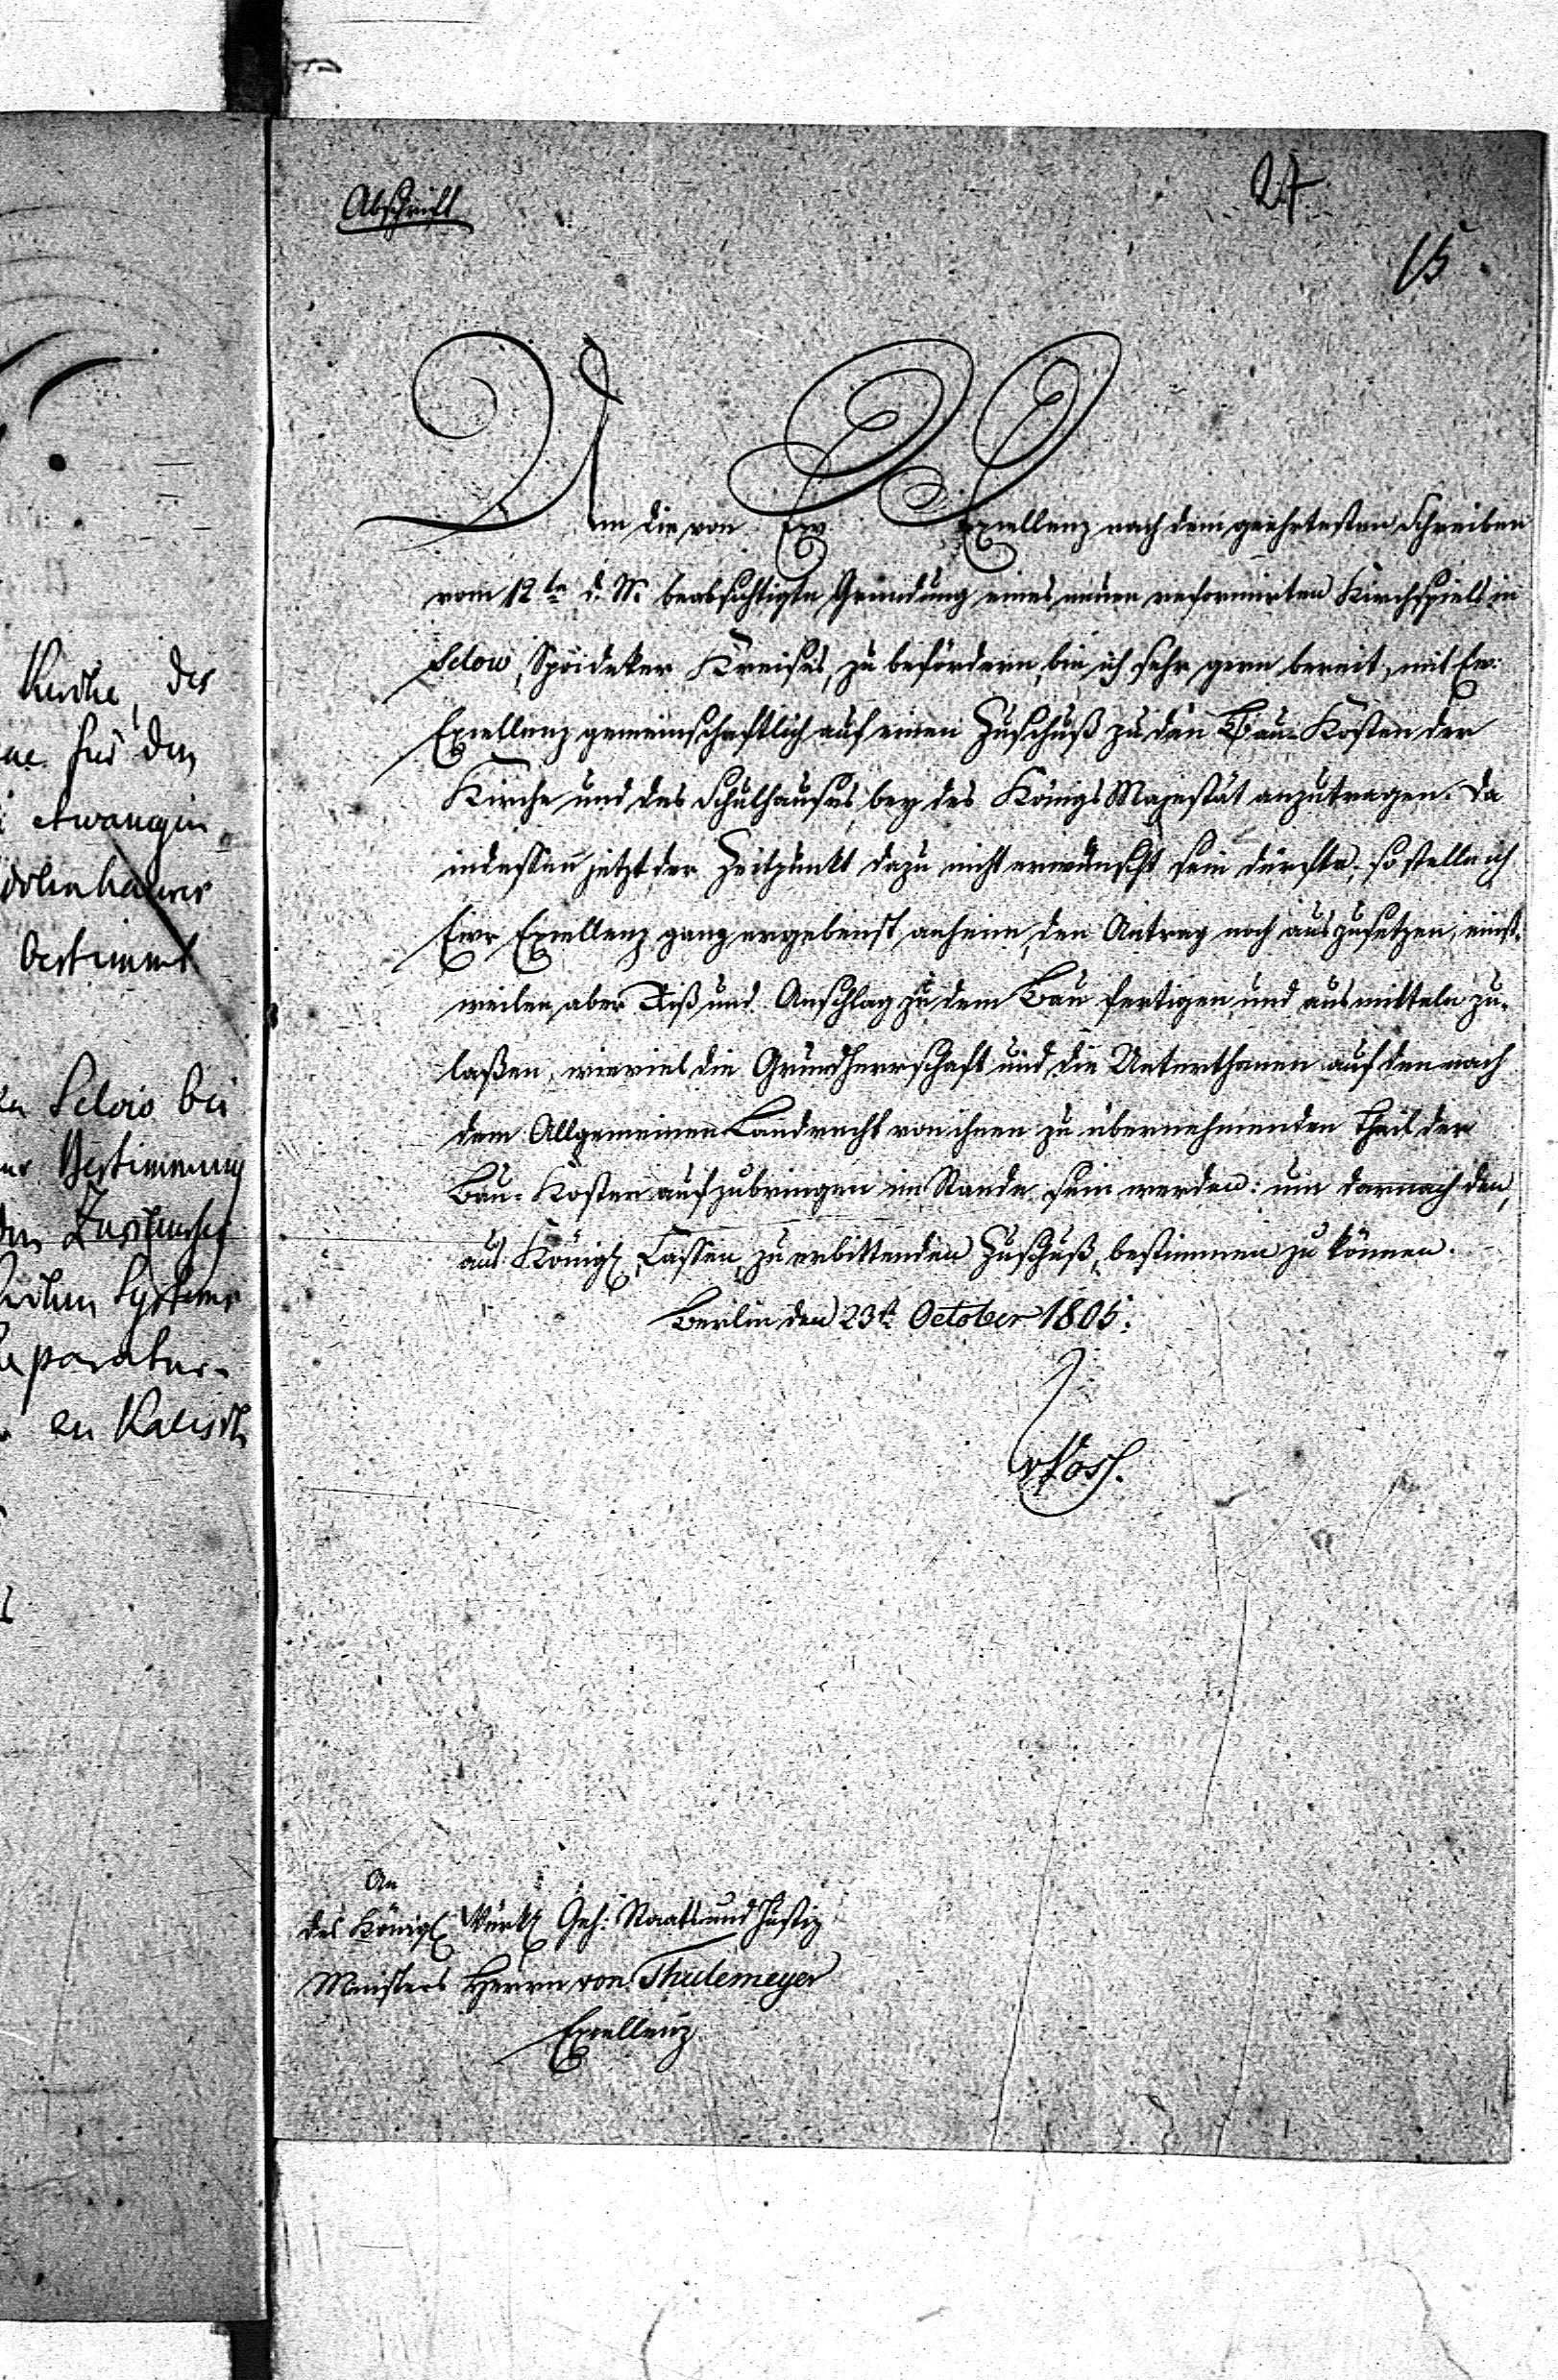 Abschrift
27
15
Um die von Ew Exellenz nach dem geehrtesten Schreiben
vom 12ten d. M. beabsichtigte Gründung eines neuen reformirten Kirchspiels in
Selow, Kreises, zu befördern, bin ich sehr gern bereit, mit Ew:
Exellenz gemeinschaftlich auf einen Zuschuß zu den Bau-Kosten der
Kirche und des Schulhauses, bey des Königs Majestät anzutragen. Da
indessen jetzt der Zeitpunkt dazu nicht erwünscht sein dürfte, so stelle ich
Ewr Exellenz ganz ergebenst anheim, den Antrag noch auszusetzen, einst-
weilen aber Riß und Anschlag zu dem Bau fertigen, und ausmitteln zu
laßen, wieviel die Grundherrschaft und die Unterthanen auf den nach
dem Allgemeinen Landrecht von ihnen zu übernehmenden Theil der
Bau-Kosten aufzubringen im Stande sein werden: um darnach den,
aus Königl Cassen, zu erbittenden Zuschuß, bestimmen zu können.
Berlin den 23t October 1805.
vVoss.
An
des Königl Würkl Geh: Staats und Justiz
Ministers Herrn von Thulemeyer
Exellenz
Kirche, des
für den
etwanigen
bestimmt
Selow bei
Bestimmung
Zuschusses
Systems
Reparatur-
en Kalisch